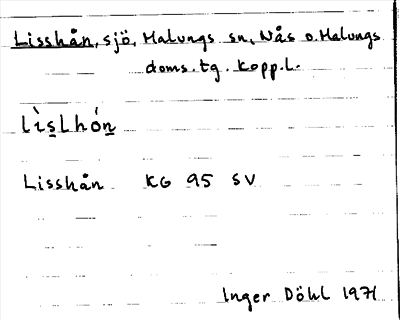 Lisshån, sjö, Malungs sn, Nås o. Malungs
doms. tg. Kopp. l.
lìs̲Lhón̲
Lisshån KG 95 SV
Inger Döhl 1971